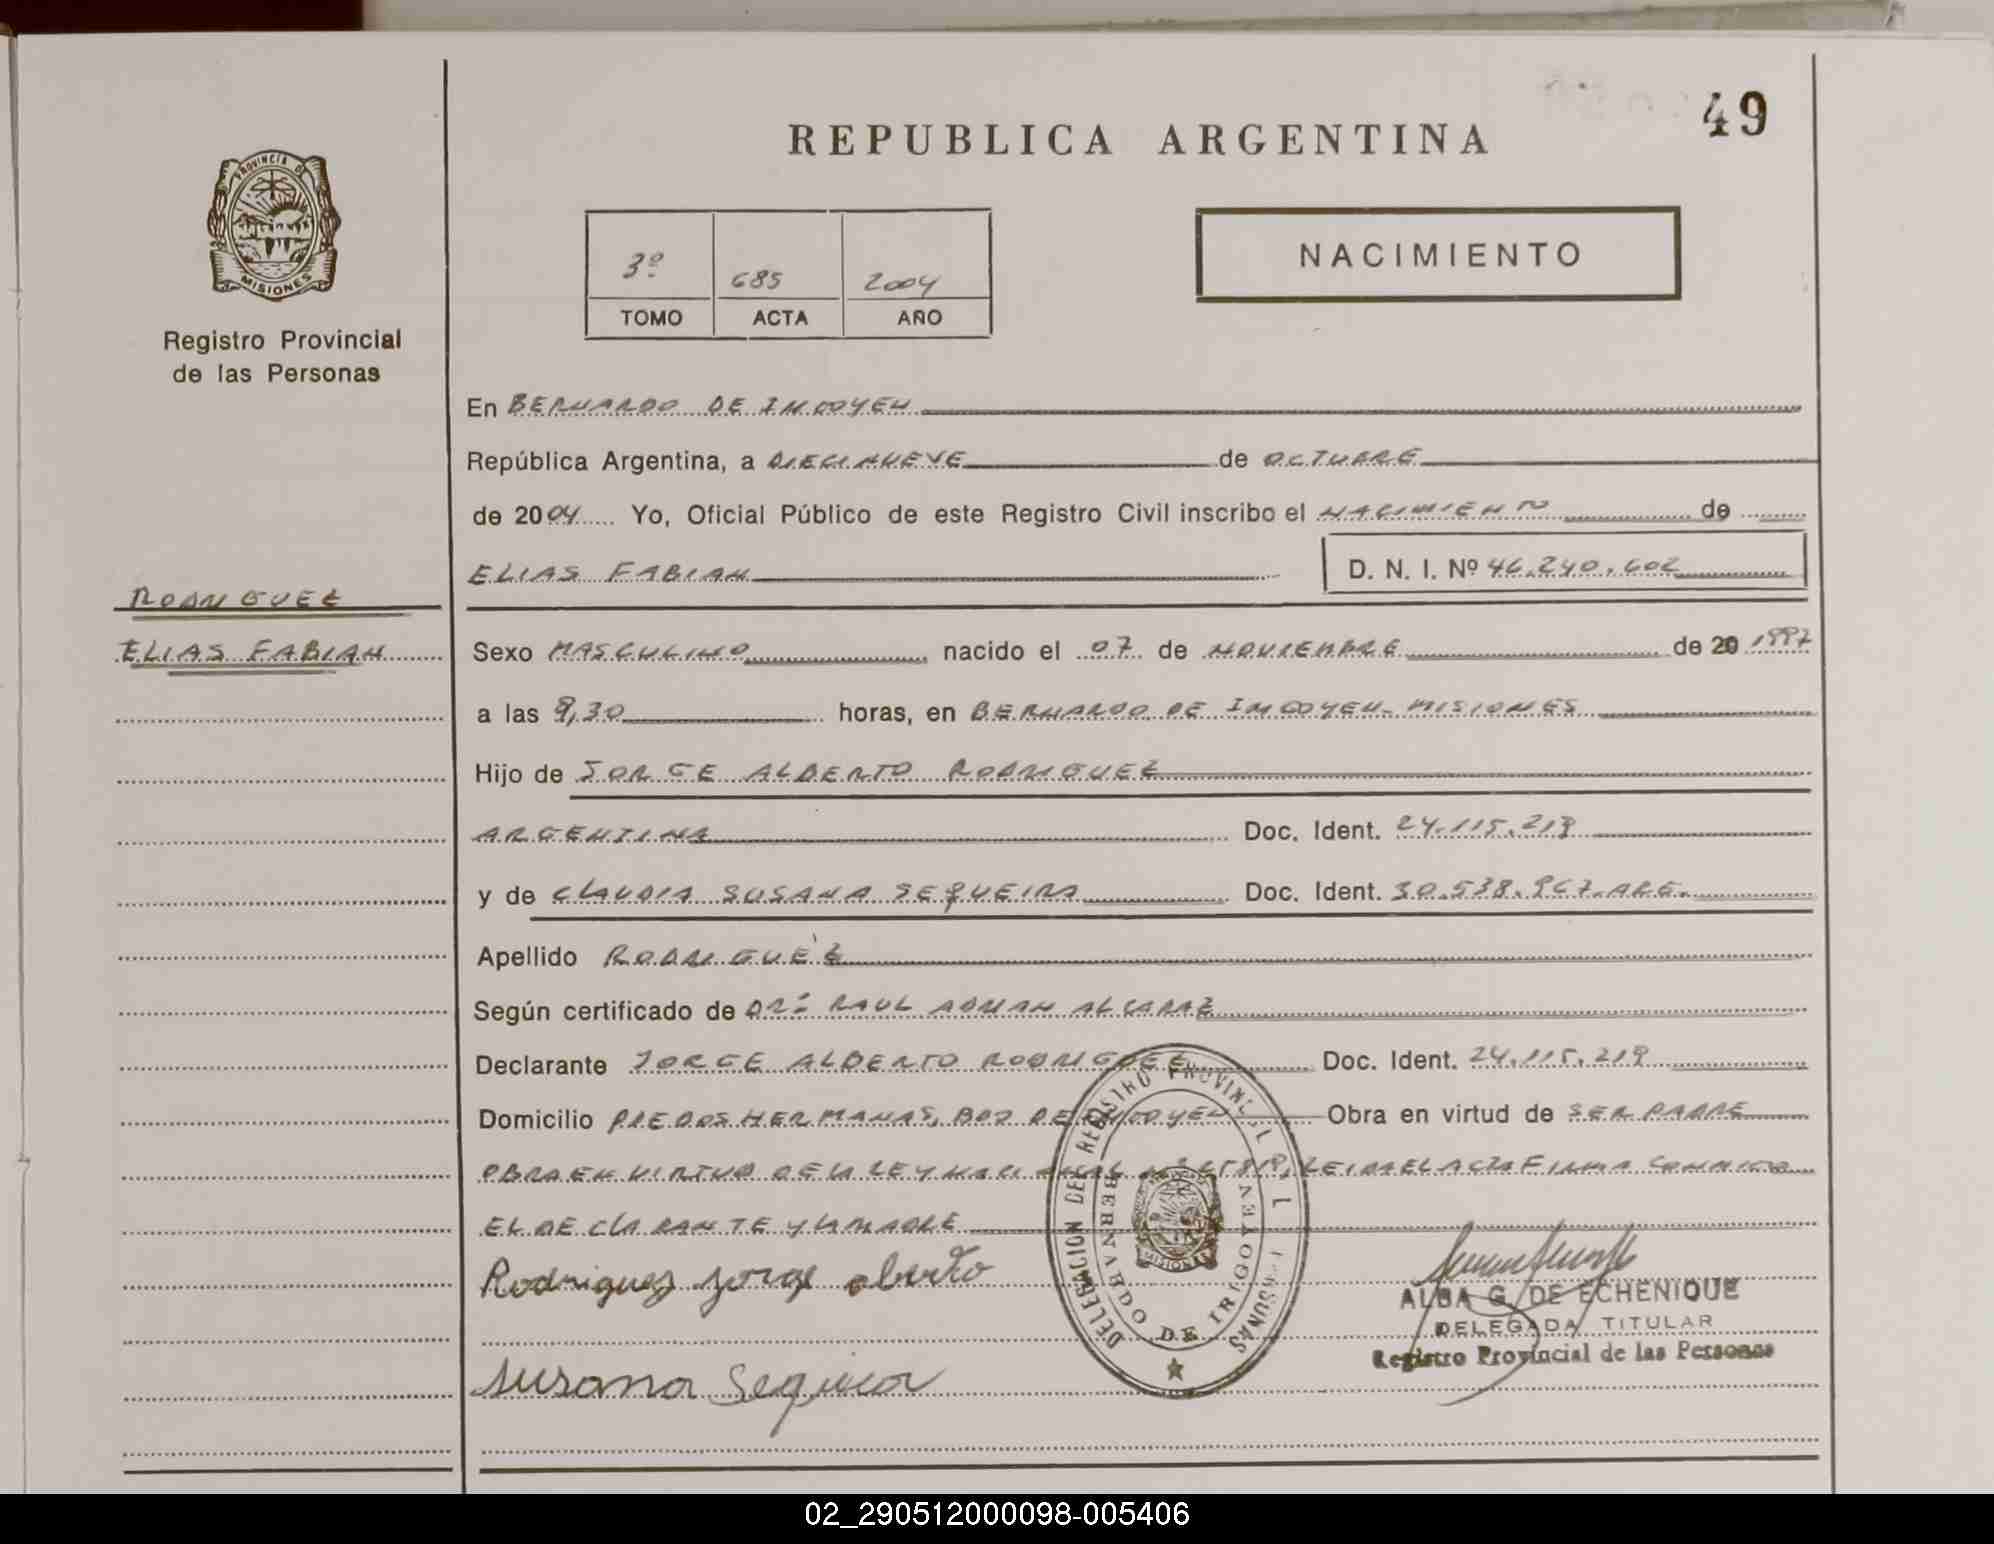 49
REPUBLICA ARGENTINA
PROVINCIA DE
MISIONES
Registro Provincial
de las Personas
NACIMIENTO
3º 685 2004
TOMO ACTA AÑO
En BERNARDO DE IRIGOYEN
República Argentina, a DIECINUEVE de OCTUBRE
de 2004 Yo, Oficial Público de este Registro Civil inscribo el NACIMIENTO de
ELIAS FABIAN D. N. I. Nº 46.240.602
RODRIGUEZ
ELIAS FABIAN
Sexo MASCULINO nacido el 07 de NOVIEMBRE de 20 1997
a las 9,30 horas, en BERNARDO DE IRIGOYEN - MISIONES
Hijo de JORGE ALBERTO RODRIGUEZ
ARGENTINA Doc. Ident. 24.115.219
y de CLAUDIA SUSANA SEQUEIRA Doc. Ident. 30.538.967. ARG.
Apellido RODRIGUEZ
Según certificado de DR: RAUL ADRIAN ALCARAZ
Declarante JORGE ALBERTO RODRIGUEZ Doc. Ident. 24.115.219
Domicilio PJE DOS HERMANAS, BDO DE IRIGOYEN Obra en virtud de SER PADRE
OBRA EN VIRTUD DE LA LEY NACIONAL Nº LEIDA EL ACTA FIRMA CONMIGO
EL DECLARANTE Y LA MADRE
Rodriguez Jorge alberto
Susana Sequeira
DELEGACION DEL REGISTRO PROVINCIAL DE LAS PERSONAS
BERNARDO DE IRIGOYEN
MISIONES
ALBA G. DE ECHENIQUE
DELEGADA TITULAR
Registro Provincial de las Personas
02_290512000098-005406